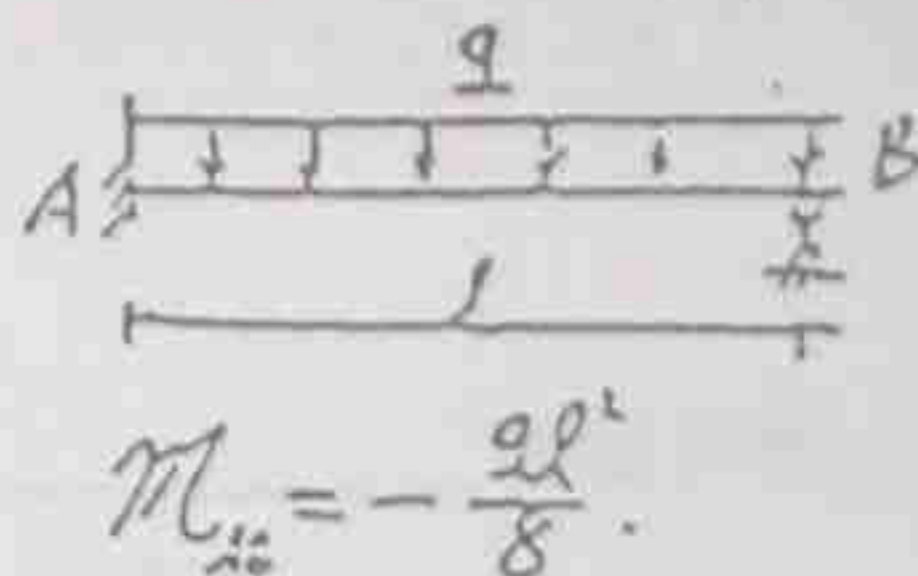 q
A B
l
M = - ql²/8 .